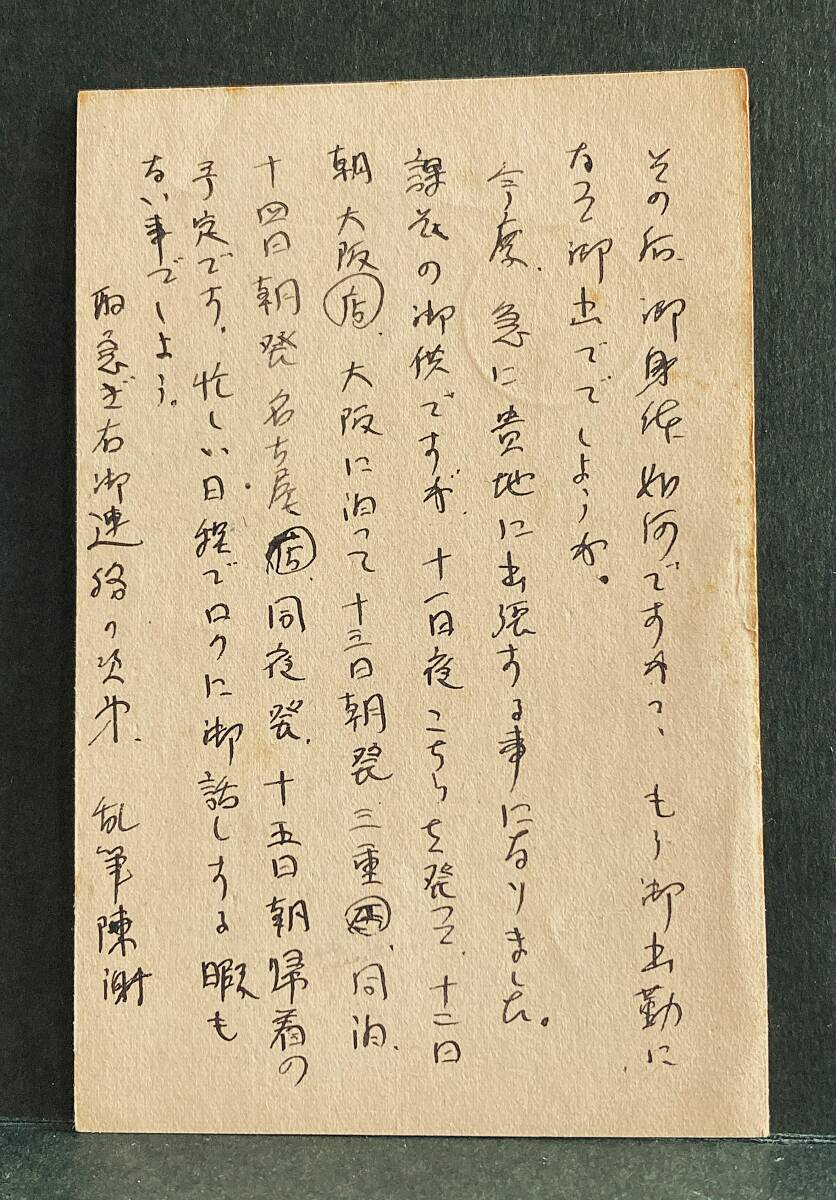 その后、御身体如何ですか、もう御出勤に
なって御出ででしょうか。
今度、急に貴地に出張する事になりました。
課長の御供ですが、十一日夜こちらを発って、十二日
朝大阪店、大阪に泊って十三日朝発、三重、同泊、
十四日朝発名古屋店、同夜発、十五日朝帰着の
予定です。忙しい日程でロクに御話しする暇も
ない事でしょう。
取急ぎ右御連絡の次第、乱筆陳謝